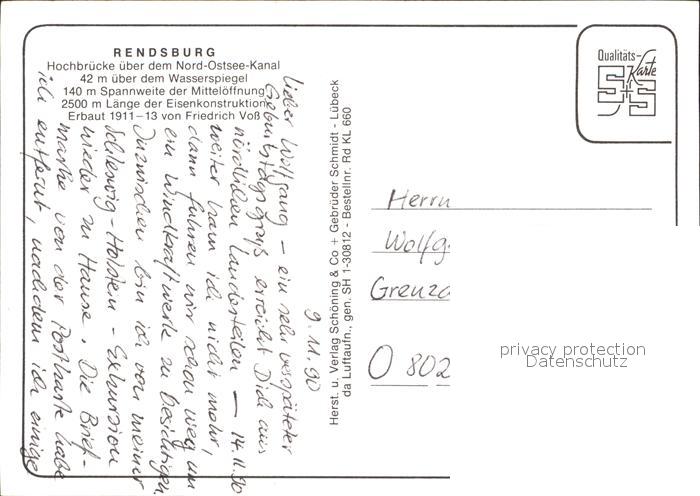 RENDSBURG
Hochbrücke über dem Nord-Ostsee-Kanal
42 m über dem Wasserspiegel
140 m Spannweite der Mittelöffnung
2500 m Länge der Eisenkonstruktion
Erbaut 1911–13 von Friedrich Voß
9.11.90
Lieber Wolfgang – ein sehr verspäteter
Geburtstagsgruß erreicht Dich aus
nördlichen Landesteilen — 14.11.90
weiter kam ich nicht mehr,
dann fuhren wir schon weg um
ein Windkraftwerk zu besichtigen
Inzwischen bin ich von meiner
Schleswig-Holstein-Exkursion
wieder zu Hause. Die Brief-
marke von der Postkarte habe
ich entfernt, nachdem ich einige
Herst. u. Verlag Schöning & Co + Gebrüder Schmidt - Lübeck
da Luftaufn., gen. SH 1-30812 - Bestellnr. Rd KL 660
Qualitäts-
Karte
S+S
Herrn
Wolfg
Grenz
O 802
privacy protection
Datenschutz